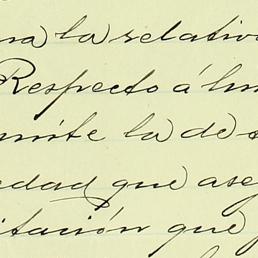 la relativ
Respecto á
mite la de
edad que ase
itación que